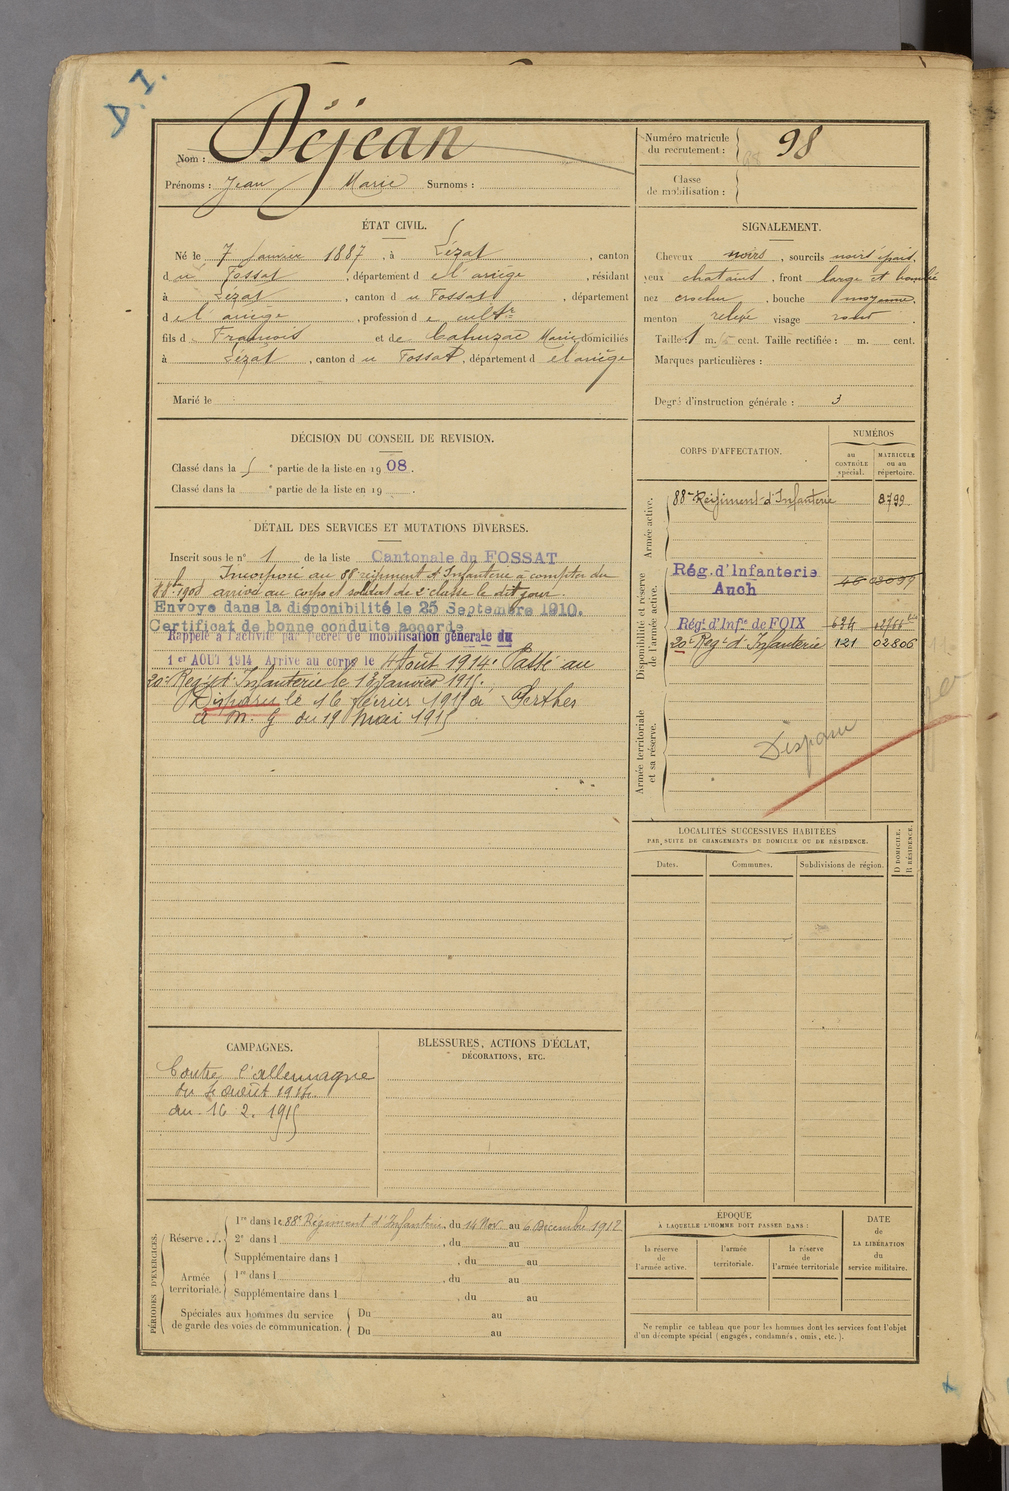 D. I.
Nom : Déjean
Prénoms : Jean Marie Surnoms :
Numéro matricule
du recrutement : 98
Classe
de mobilisation :
ÉTAT CIVIL.
Né le 7 Janvier 1887, à Lézat, canton
du Fossat, département de l'ariège, résidant
à Lézat, canton du Fossat, département
de l'ariège, profession de cultr
fils de François et de Cahuzac Marie domiciliés
à Lézat, canton du Fossat, département de l'ariège
Marié le
SIGNALEMENT.
Cheveux noirs, sourcils noirs épais,
yeux chatains, front large et bombé
nez crochu, bouche moyenne,
menton relevé visage rond.
Taille : 1 m. cent. Taille rectifiée : m. cent.
Marques particulières :
Degré d'instruction générale : 3
DÉCISION DU CONSEIL DE REVISION.
Classé dans la e partie de la liste en 1908.
Classé dans la e partie de la liste en 19 .
CORPS D'AFFECTATION.
NUMÉROS
au
CONTRÔLE
spécial.
MATRICULE
ou au
répertoire.
Armée active.
88me Régiment d'Infanterie 8799
Disponibilité et réserve
de l'armée active.
Rég. d'Infanterie
Auch
Rég. d'Infie de FOIX 634
20e Regt d'Infanterie 121 02806
Armée territoriale
et sa réserve.
Disparu
DÉTAIL DES SERVICES ET MUTATIONS DIVERSES.
Inscrit sous le no 1 de la liste Cantonale du FOSSAT
Incorporé au 88e régiment d'Infanterie à compter du
8 8bre 1908 arrivé au corps et soldat de 2e classe le dit jour.
Envoyé dans la disponibilité le 25 Septembre 1910.
Certificat de bonne conduite accordé
Rappelé à l'activité par Décret de mobilisation générale du
1er AOUT 1914 Arrivé au corps le 4 Août 1914. Passé au
20e Regt d'Infanterie le 13 Janvier 1915.
Disparu le 16 février 1915 à Perthes
a m. g du 19 mai 1915
LOCALITÉS SUCCESSIVES HABITÉES
PAR SUITE DE CHANGEMENTS DE DOMICILE OU DE RÉSIDENCE.
Dates.
Communes.
Subdivisions de région.
D DOMICILE.
R RÉSIDENCE.
CAMPAGNES.
Contre l'allemagne
du 4 août 1914
au 16 2. 1915
BLESSURES, ACTIONS D'ÉCLAT,
DÉCORATIONS, ETC.
PÉRIODES D'EXERCICES.
Réserve...
1re dans le 88e Régiment d'Infanterie, du 14 Nov au 6 Décembre 1912
2e dans l , du au
Supplémentaire dans l , du au
Armée
territoriale.
1re dans l , du au
Supplémentaire dans l , du au
Spéciales aux hommes du service
de garde des voies de communication.
Du au
Du au
ÉPOQUE
A LAQUELLE L'HOMME DOIT PASSER DANS :
la réserve
de
l'armée active.
l'armée
territoriale.
la réserve
de
l'armée territoriale
DATE
de
LA LIBÉRATION
du
service militaire.
Ne remplir ce tableau que pour les hommes dont les services font l'objet
d'un décompte spécial (engagés, condamnés, omis, etc.).